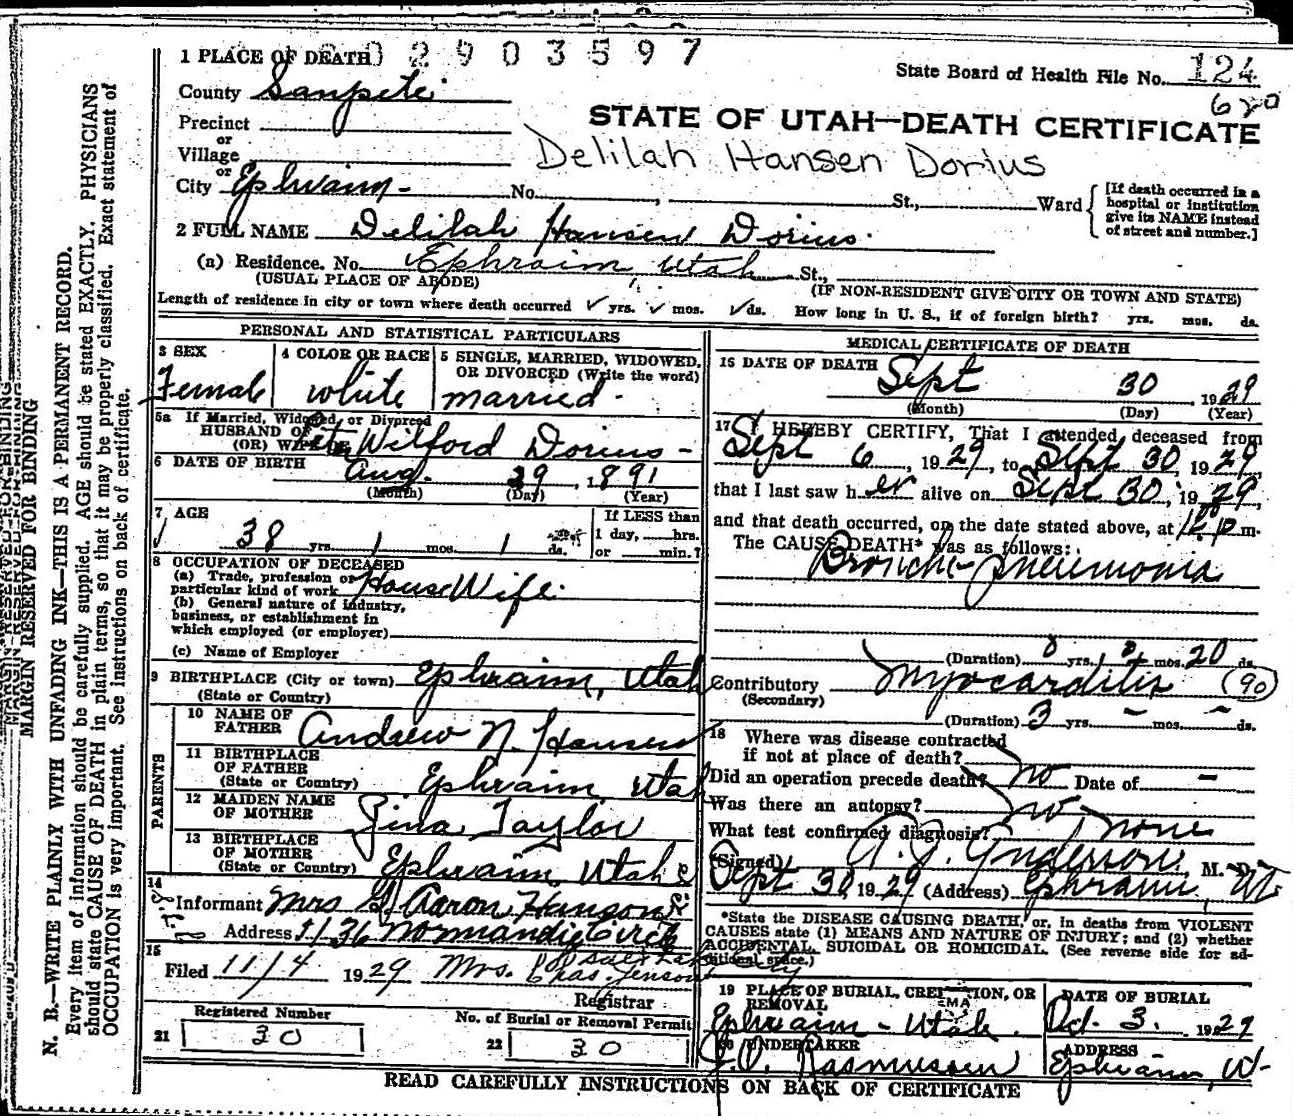 0 2 9 0 3 5 9 7
1 PLACE OF DEATH
State Board of Health File No. 124
620
County Sanpete
STATE OF UTAH—DEATH CERTIFICATE
Precinct
or
Village
Delilah Hansen Dorius
or
City Ephraim No. , St., Ward
[If death occurred in a
hospital or institution
give its NAME instead
of street and number.]
2 FULL NAME Delilah Hansen Dorius
(a) Residence. No. Ephraim, Utah St.,
(USUAL PLACE OF ABODE) (IF NON-RESIDENT GIVE CITY OR TOWN AND STATE)
Length of residence in city or town where death occurred ✓ yrs. ✓ mos. ✓ ds. How long in U. S., if of foreign birth? yrs. mos. ds.
PERSONAL AND STATISTICAL PARTICULARS
3 SEX
Female
4 COLOR OR RACE
white
5 SINGLE, MARRIED, WIDOWED,
OR DIVORCED (Write the word)
married
5a If Married, Widowed, or Divorced
HUSBAND OF
(OR) WIFE OF Wilford Dorius
6 DATE OF BIRTH Aug. 29, 1891
(Month) (Day) (Year)
7 AGE
38 yrs. 1 mos. 1 ds.
If LESS than
1 day, hrs.
or min.?
8 OCCUPATION OF DECEASED
(a) Trade, profession or
particular kind of work House Wife
(b) General nature of industry,
business, or establishment in
which employed (or employer)
(c) Name of Employer
9 BIRTHPLACE (City or town) Ephraim, Utah
(State or Country)
PARENTS
10 NAME OF
FATHER Andrew N. Hansen
11 BIRTHPLACE
OF FATHER
(State or Country) Ephraim, Utah
12 MAIDEN NAME
OF MOTHER Zina Taylor
13 BIRTHPLACE
OF MOTHER
(State or Country) Ephraim, Utah
14
Informant Mrs Aaron Hanson
Address 1136 Normandie Circle
Salt Lake City
15
Filed 11/4 1929 Mrs. Chas. Jenson
Registrar
Registered Number
21 30
No. of Burial or Removal Permit
22 30
MEDICAL CERTIFICATE OF DEATH
15 DATE OF DEATH
Sept 30, 1929
(Month) (Day) (Year)
17 I HEREBY CERTIFY, That I attended deceased from
Sept 6, 1929, to Sept 30, 1929,
that I last saw her alive on Sept 30, 1929,
and that death occurred, on the date stated above, at 12 p m.
The CAUSE DEATH* was as follows:
Broncho-Pneumonia
(Duration) yrs. mos. 20 ds.
Contributory Myocarditis (90)
(Secondary)
(Duration) 3 yrs. – mos. – ds.
18 Where was disease contracted
if not at place of death?
Did an operation precede death? no Date of –
Was there an autopsy? no
What test confirmed diagnosis? none
(Signed) A. J. Anderson, M. D.
Sept 30 1929 (Address) Ephraim, Ut
*State the DISEASE CAUSING DEATH, or, in deaths from VIOLENT
CAUSES state (1) MEANS AND NATURE OF INJURY; and (2) whether
ACCIDENTAL, SUICIDAL OR HOMICIDAL. (See reverse side for ad-
ditional space.)
19 PLACE OF BURIAL, CREMATION, OR
REMOVAL
Ephraim - Utah.
DATE OF BURIAL
Oct. 3. 1929
20 UNDERTAKER
Rasmussen
ADDRESS
Ephraim, Ut-
READ CAREFULLY INSTRUCTIONS ON BACK OF CERTIFICATE
MARGIN RESERVED FOR BINDING
N. B.—WRITE PLAINLY WITH UNFADING INK—THIS IS A PERMANENT RECORD.
Every item of information should be carefully supplied. AGE should be stated EXACTLY. PHYSICIANS
should state CAUSE OF DEATH in plain terms, so that it may be properly classified. Exact statement of
OCCUPATION is very important. See instructions on back of certificate.